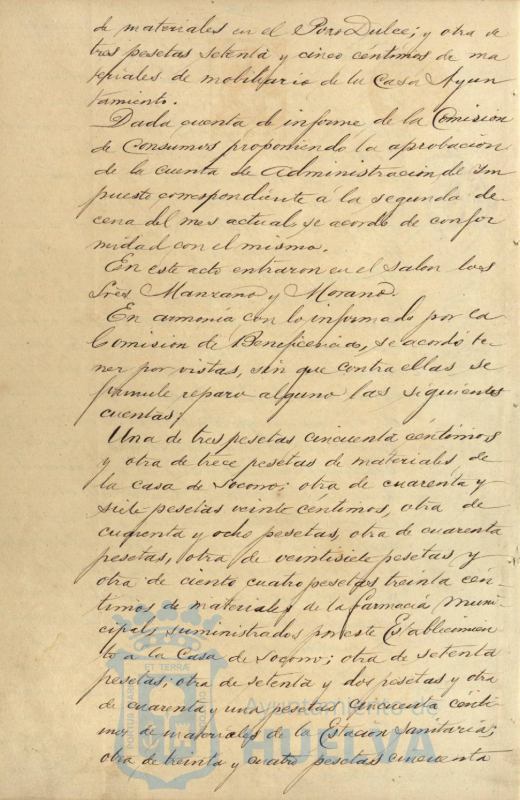 de materiales en el Pozo Dulce; y otra de
tres pesetas setenta y cinco céntimos de ma
teriales de mobiliario de la Casa Ayun
tamiento.
Dada cuenta de informe de la Comision
de Consumos proponiendo la aprobacion
de la cuenta de Administracion de Ym
puesto correspondiente á la segunda de
cena del mes actual, se acordó de confor
midad con el mismo.
En este acto entraron en el salon los
Sres Manzano y Morano.
En armonía con lo informado por la
Comision de Beneficencia, se acordó te
ner por vistas, sin que contra ellas se
formule reparo alguno las siguientes
cuentas:
Una de tres pesetas cincuenta céntimos
y otra de trece pesetas de materiales de
la casa de Socorro; otra de cuarenta y
siete pesetas veinte centimos, otra de
cuarenta y ocho pesetas, otra de cuarenta
pesetas, otra de veintisiete pesetas y
otra de ciento cuatro pesetas treinta cén
timos de materiales de la farmacia muni
cipal, suministrados por este Establecimien
to a la Casa de Socorro; otra de setenta
pesetas; otra de setenta y dos pesetas y otra
de cuarenta y una pesetas cincuenta cénti
mos de materiales de la Estacion Sanitaria;
otra de treinta y cuatro pesetas cincuenta
PORTUS MARIS
ET TERRÆ
CUSTODIO
Ayuntamiento de
HUELVA